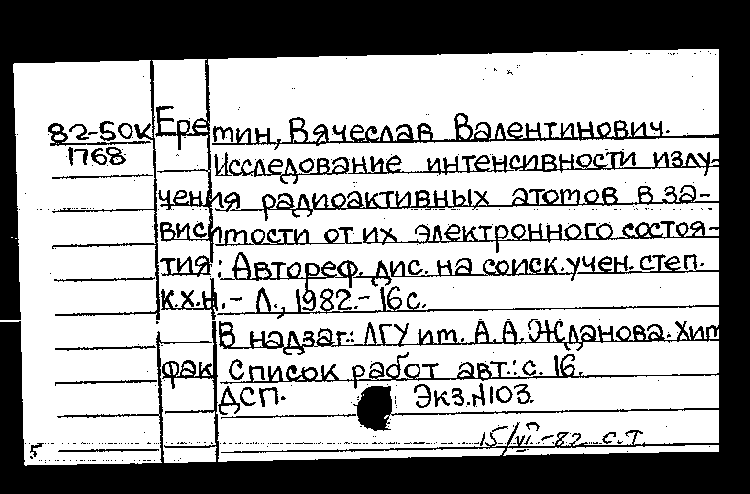 82-50к Еремин, Вячеслав Валентинович.
1768 Исследование интенсивности излу-
чения радиоактивных атомов в за-
висимости от их электронного состоя-
ния: Автореф. дис. на соиск. учен. степ.
к.х.н. - Л., 1982. - 16 с.
В надзаг.: ЛГУ им. А.А. Жданова. Хим
фак Список работ авт.: с. 16.
ДСП. Экз.№103
15/VI-82 С.Т.
5